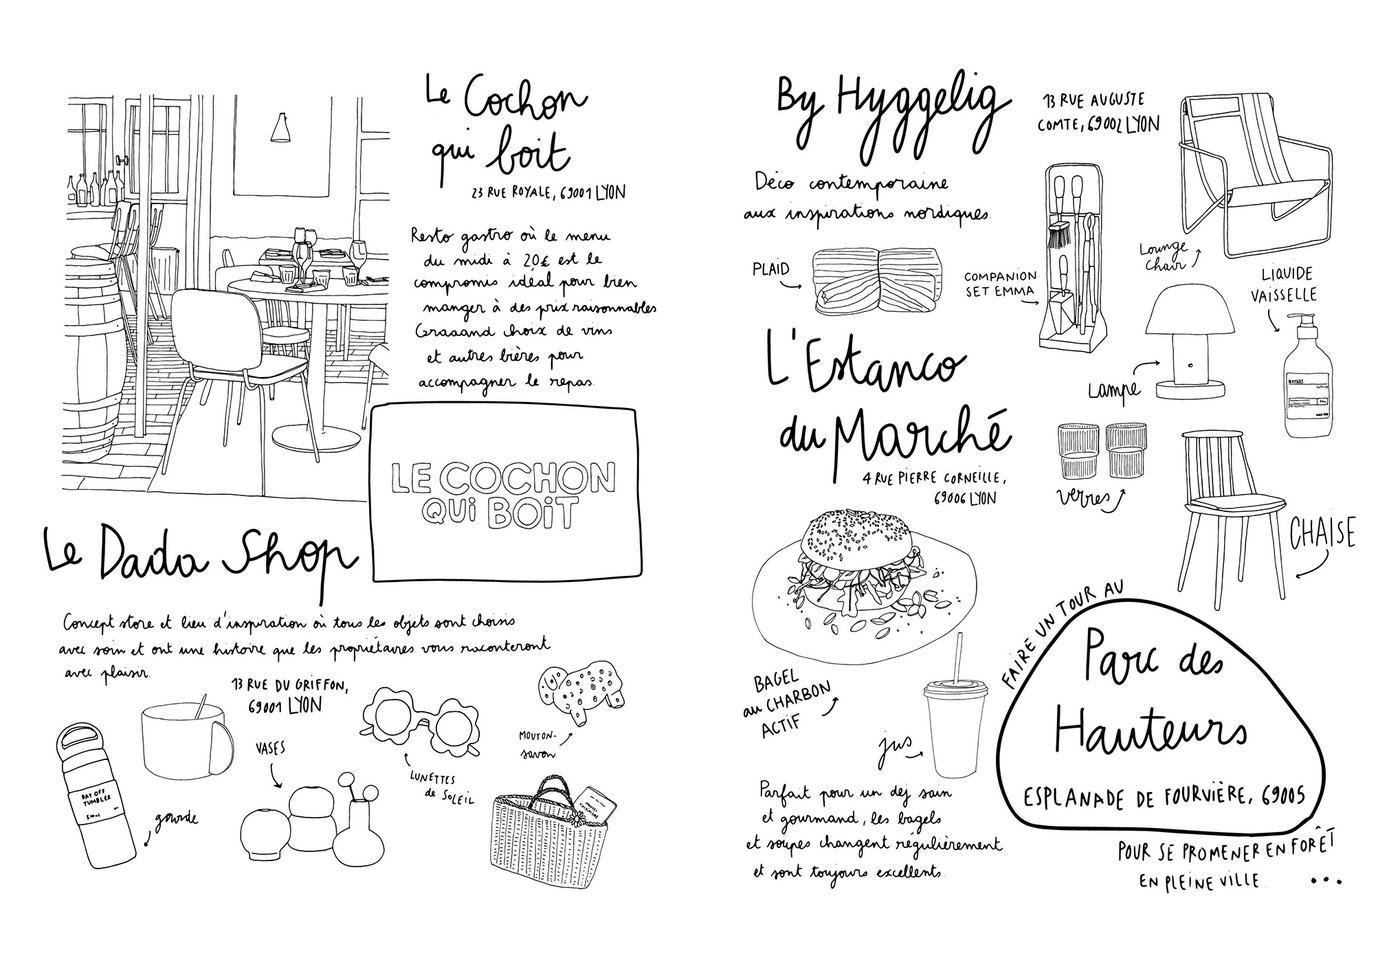 Le Cochon
qui boit
23 RUE ROYALE, 69001 LYON
Resto gastro où le menu
du midi à 20€ est le
compromis idéal pour bien
manger à des prix raisonnables
Graaaand choix de vins
et autres bières pour
accompagner le repas.
LE COCHON
QUi BOiT
Le Dada Shop
Concept store et lieu d'inspiration où tous les objets sont choisis
avec soin et ont une histoire que les propriétaires vous raconteront
avec plaisir.
13 RUE DU GRIFFON,
69001 LYON
DAY OFF
TUMBLER
gourde
VASES
LUNETTES
de SOLEIL
MOUTON-
savon
By Hyggelig
13 RUE AUGUSTE
COMTE, 69002 LYON
Déco contemporaine
aux inspirations nordiques.
PLAID
COMPANION
SET EMMA
Lounge
Chair
LIQUIDE
VAISSELLE
Lampe
verres
CHAISE
L'Estanco
du Marché
4 RUE PIERRE CORNEILLE,
69006 LYON
BAGEL
au CHARBON
ACTIF
jus
Parfait pour un dej sain
et gourmand, les bagels
et soupes changent régulièrement
et sont toujours excellents.
FAIRE UN TOUR AU
Parc des
Hauteurs
ESPLANADE DE FOURVIÈRE, 69005
POUR SE PROMENER EN FORÊT
EN PLEINE VILLE ...